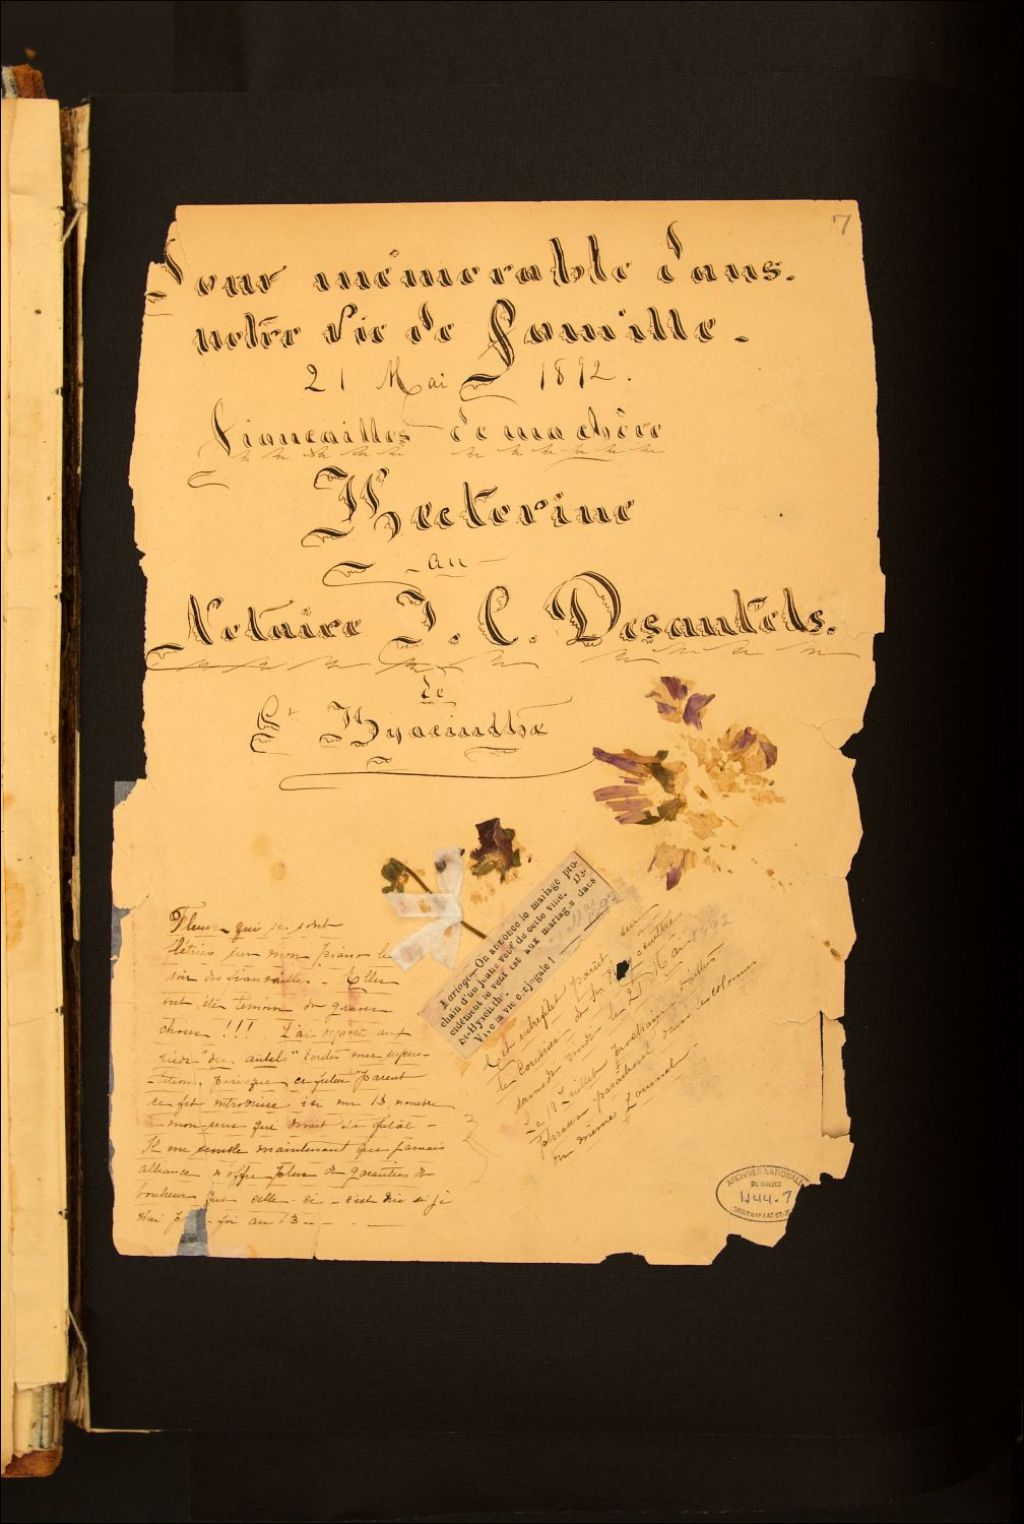 7
Jour mémorable dans.
notre vie de Famille.
21 Mai 1892.
Fiancailles de ma chère
Hectorine
- au -
Notaire J. C. Desautels.
de
St Hyacinthe
Mariage—On annonce le mariage pro-
chain d'un jeune veuf de cette ville. Dé-
cidément le veuf est aux mariages dans
St-Hyacinthe.
Vive la vie conjugale!
Fleurs qui se sont
flétries sur mon piano le
soir des fiancailles. Elles
ont été témoin de graves
choses !!! J'ai déposé aux
pieds "des autels" toutes mes supers-
-titions, puisque ce futur parent
se fit introduire ici un 13
à mon sens que
Il me semble maintenant que jamais
alliance n'offre plus de garanties de
bonheur que celle-ci - c'est dire si je
n'ai foi au 13 - - - -
Cet entrefilet parut sur
le Courrier de St Hyacinthe
samedi 21 Mai 1892
Le 12 Juillet prochain
dans les colonnes
du même Journal.
ARCHIVES NATIONALES
DU QUÉBEC